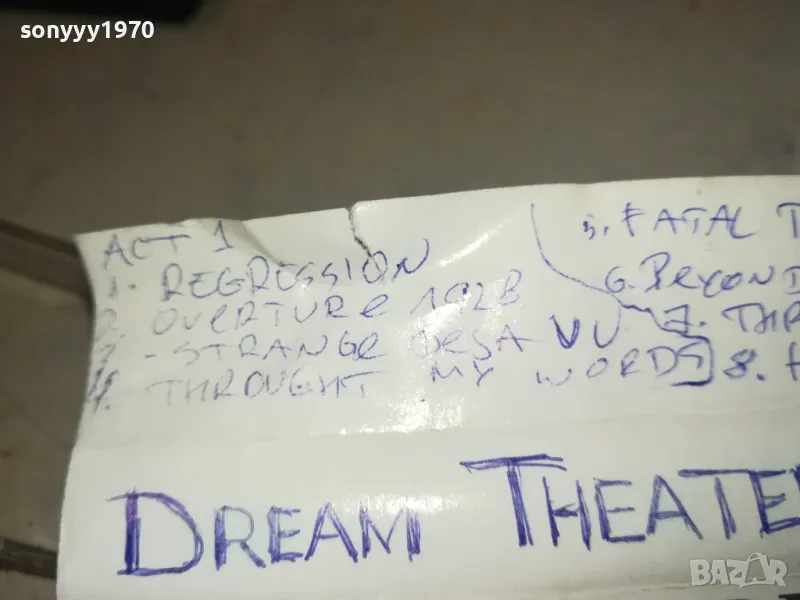 sonyyy1970
ACT 1
1. REGRESSION
2. OVERTURE 1928
3 - STRANGE DESA VU
4. THROUGHT MY WORDS
5. FATAL T
6. BEYOND
7. THR
8. H
DREAM THEATE
BAZAR